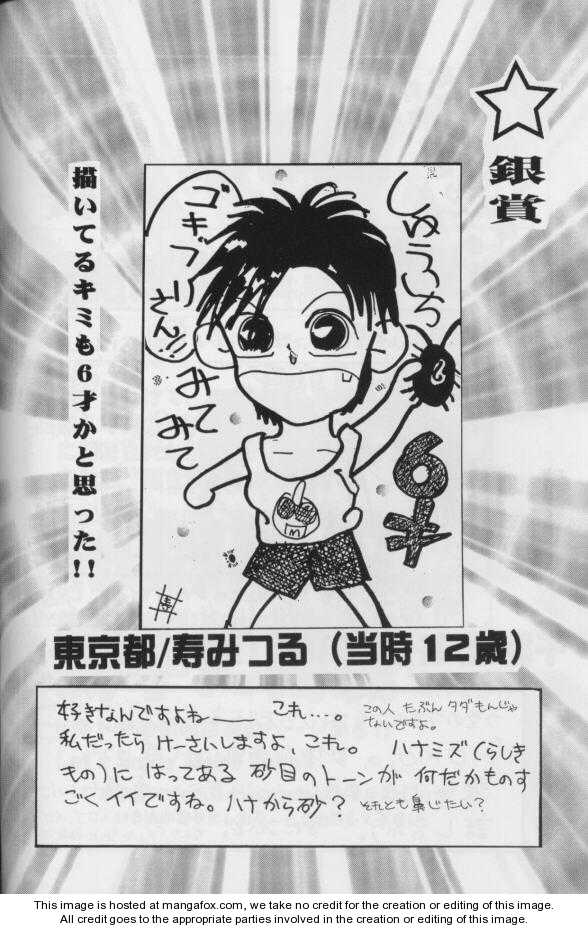 銀賞
描いてるキミも6才かと思った!!
しゅういち
6才
ゴキブリ
さん!!
みて
みて
M
東京都/寿みつる（当時12歳）
好きなんですよねー これ…。この人 たぶん タダもんじゃ
ないですよ。
私だったら けーさいしますよ、これ。 ハナミズ（らしき
もの）に はってある 砂目のトーンが 何だかものす
ごく イイですね。ハナから砂？ それとも 鼻じたい？
This image is hosted at mangafox.com, we take no credit for the creation or editing of this image.
All credit goes to the appropriate parties involved in the creation or editing of this image.